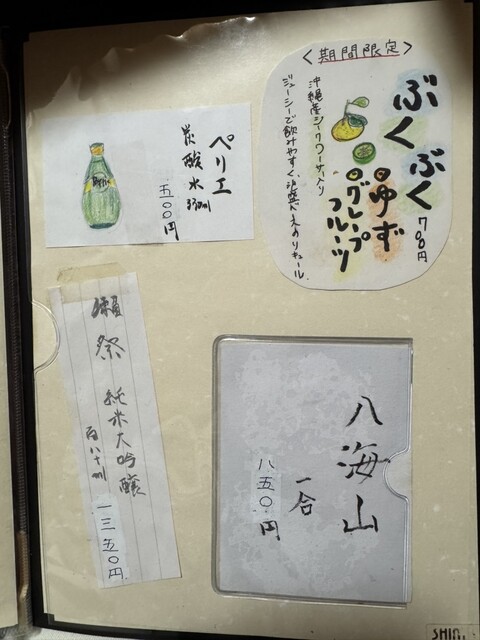 <期間限定>
ぶくぶく
ゆず
グレープフルーツ
780円
沖縄産シークワーサー入り
ジューシーで飲みやすく、泡盛ベースのリキュール。
ペリエ
炭酸水 330ml
五〇〇円
獺祭 純米大吟醸
百八十ml
一三五〇円
八海山
一合
八五〇円